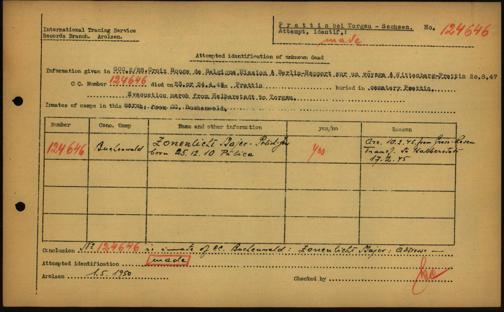 International Tracing Service
Records Branch. Arolsen.
Prettin bei Torgau - Sachsen.
Attempt. identif.:
made
No. 124646
Attempted identification of unknown dead
Information given in GCC.2/HB.Croix Rouge de Belgique Mission à Berlin-Rapport sur un Voyage à Wittenberg-Prettin
C C. Number 124646 died on 23.or 24.4.45. Prettin buried in cemetery Prettin.
Evacuation march from Halberstadt to Torgau.
Inmates of camps in this march: from CC. Buchenwald.
Number Conc. Camp Name and other information yes/no Reason
124646 Buchenwald Zonenlicht Majer - Polit. Jew yes Arr. 10.2.45 from Gross-Rosen
born 25.12.10 Transf. to Halberstadt
17.2.45
Conclusion No 124646 is inmate of CC. Buchenwald: Zonenlicht Majer; address —
Attempted identification made
Arolsen 1.5.1950 Checked by